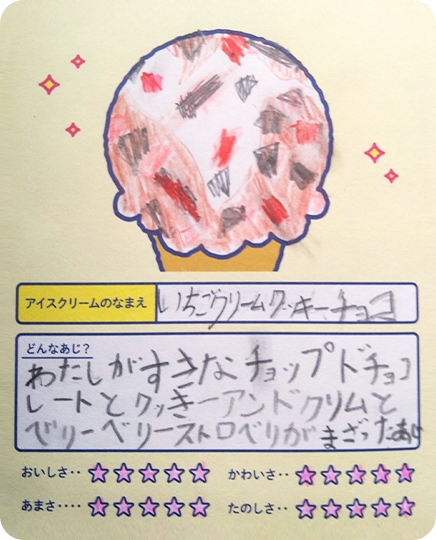 アイスクリームのなまえ いちごクリームクッキーチョコ
どんなあじ?
わたしがすきなチョップドチョコ
レートとクッキーアンドクリムと
ベリーベリーストロベリがまざったあじ
おいしさ‥ ☆☆☆☆☆ かわいさ‥ ☆☆☆☆☆
あまさ‥‥ ☆☆☆☆☆ たのしさ‥ ☆☆☆☆☆